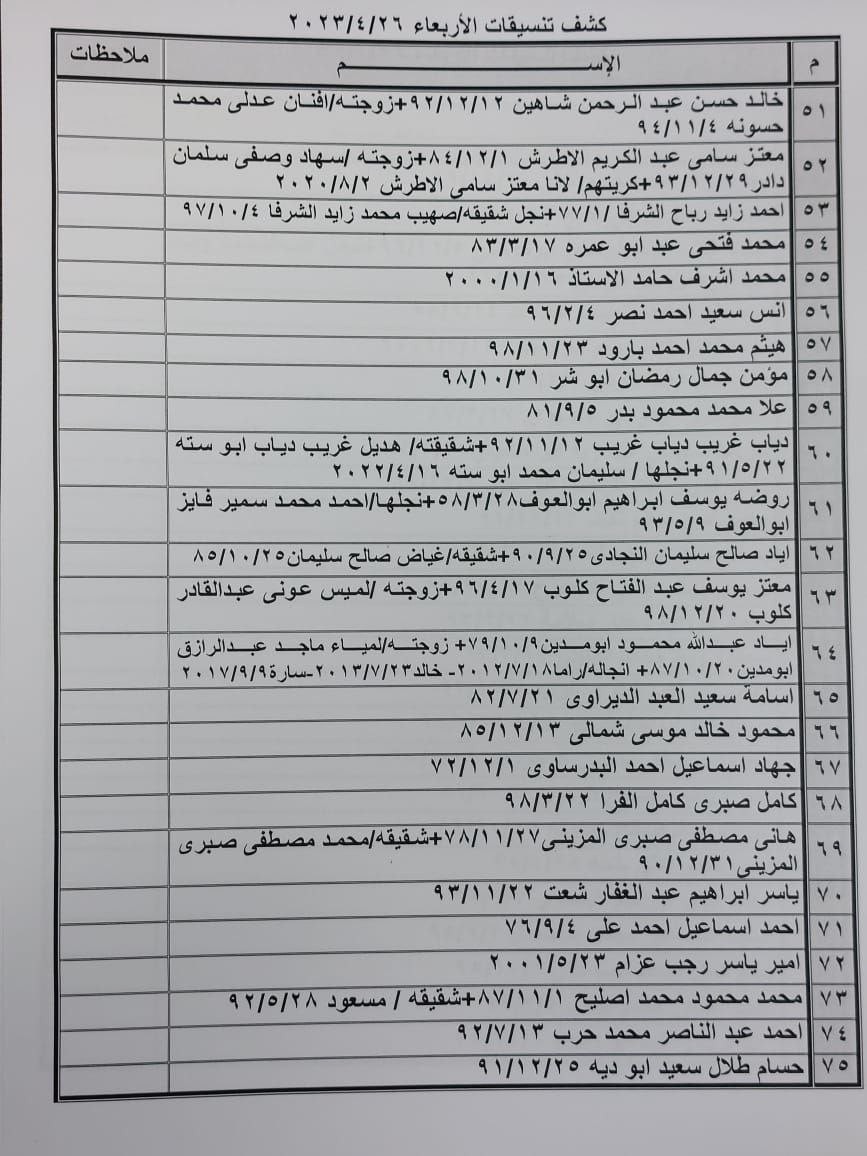 كشف تنسيقات الأربعاء ٢٠٢٣/٤/٢٦
م الإســـــــــــــم ملاحظات
٥١ خالد حسن عبد الرحمن شاهين ٩٢/١٢/١٢+زوجته/افنان عدلى محمد
حسونه ٩٤/١١/٤
٥٢ معتز سامى عبد الكريم الاطرش ٨٤/١٢/١+زوجته /سهاد وصفى سلمان
دادر٩٣/١٢/٢٩+كريتهم/ لانا معتز سامى الاطرش ٢٠٢٠/٨/٢
٥٣ احمد زايد رباح الشرفا /٧٧/١+نجل شقيقه/صهيب محمد زايد الشرفا ٩٧/١٠/٤
٥٤ محمد فتحى عبد ابو عمره ٨٣/٣/١٧
٥٥ محمد اشرف حامد الاستاذ ٢٠٠٠/١/١٦
٥٦ انس سعيد احمد نصر ٩٦/٢/٤
٥٧ هيثم محمد احمد بارود ٩٨/١١/٢٣
٥٨ مؤمن جمال رمضان ابو شر ٩٨/١٠/٣١
٥٩ علا محمد محمود بدر ٨١/٩/٥
٦٠ دياب غريب دياب غريب ٩٢/١١/١٢+شقيقته/ هديل غريب دياب ابو سته
٩١/٥/٢٢+نجلها / سليمان محمد ابو سته ٢٠٢٢/٤/١٦
٦١ روضه يوسف ابراهيم ابوالعوف٥٨/٣/٢٨+نجلها/احمد محمد سمير فايز
ابوالعوف ٩٣/٥/٩
٦٢ اياد صالح سليمان النجادى٩٠/٩/٢٥+شقيقه/غياض صالح سليمان٨٥/١٠/٢٥
٦٣ معتز يوسف عبد الفتاح كلوب ٩٦/٤/١٧+زوجته /لميس عونى عبدالقادر
كلوب ٩٨/١٢/٢٠
٦٤ اياد عبدالله محمود ابومدين٧٩/١٠/٩+ زوجته/لمياء ماجد عبدالرازق
ابومدين٨٧/١٠/٢٠+ انجاله/راما٢٠١٢/٧/١٨- خالد٢٠١٣/٧/٢٣-سارة٢٠١٧/٩/٩
٦٥ اسامة سعيد العبد الديراوى ٨٢/٧/٢١
٦٦ محمود خالد موسى شمالى ٨٥/١٢/١٣
٦٧ جهاد اسماعيل احمد البدرساوى ٧٢/١٢/١
٦٨ كامل صبرى كامل الفرا ٩٨/٣/٢٢
٦٩ هانى مصطفى صبرى المزينى٧٨/١١/٢٧+شقيقه/محمد مصطفى صبرى
المزينى٩٠/١٢/٣١
٧٠ ياسر ابراهيم عبد الغفار شعت ٩٣/١١/٢٢
٧١ احمد اسماعيل احمد على ٧٦/٩/٤
٧٢ امير ياسر رجب عزام ٢٠٠١/٥/٢٣
٧٣ محمد محمود محمد اصليح ٨٧/١١/١+شقيقه / مسعود ٩٢/٥/٢٨
٧٤ احمد عبد الناصر محمد حرب ٩٢/٧/١٣
٧٥ حسام طلال سعيد ابو ديه ٩١/١٢/٢٥